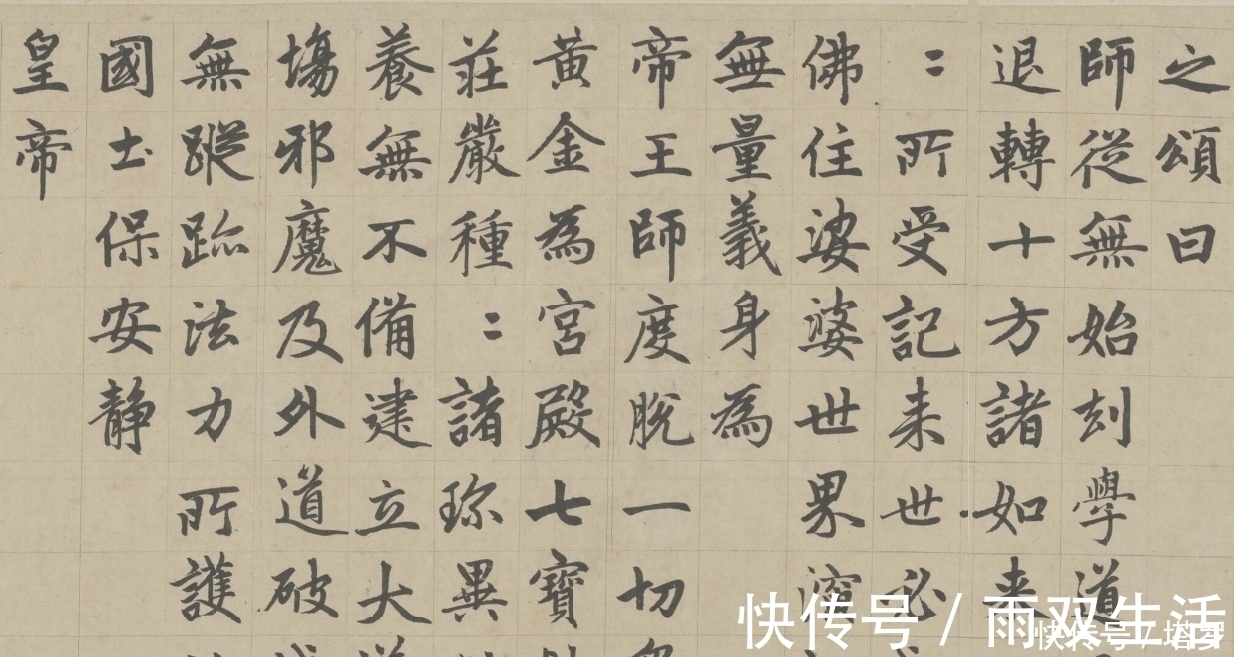 之頌曰
師從無始刼學道
退轉十方諸如来
〻所受記来世必
佛住娑婆世界演
無量義身為
帝王師度脱一切
黄金為宮殿七寶
荘嚴種〻諸珎異
養無不備建立大
塲邪魔及外道破
無蹤跡法力所護
國土保安静
皇帝
快传号 / 雨双生活
快传号 / 塔罗